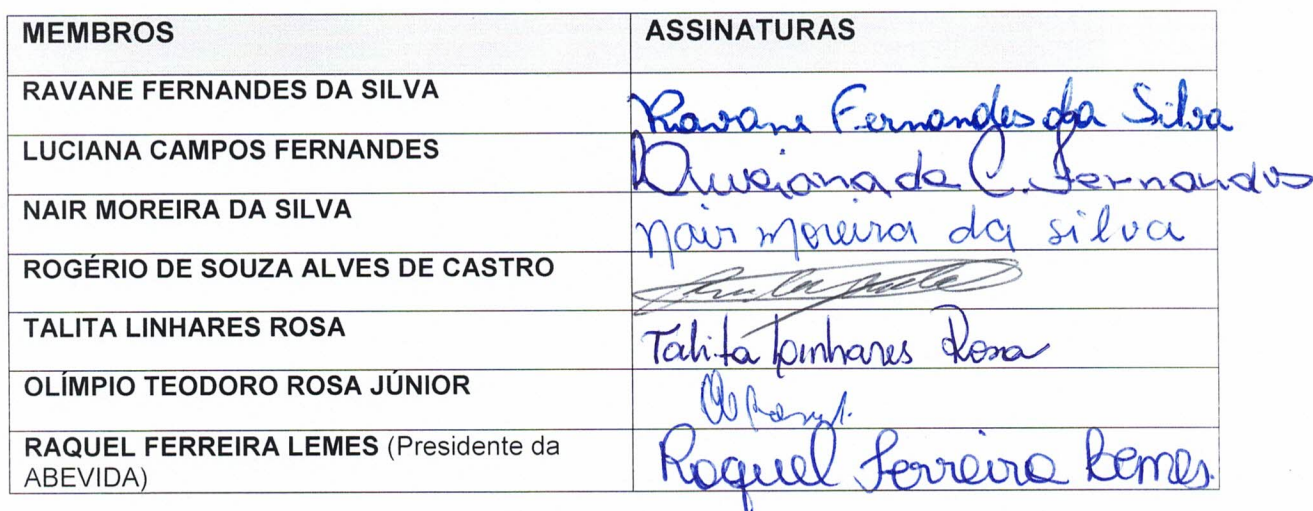 MEMBROS ASSINATURAS
RAVANE FERNANDES DA SILVA Ravane Fernandes da Silva
LUCIANA CAMPOS FERNANDES Luciana de C. Fernandes
NAIR MOREIRA DA SILVA Nair Moreira da Silva
ROGÉRIO DE SOUZA ALVES DE CASTRO
TALITA LINHARES ROSA Talita Linhares Rosa
OLÍMPIO TEODORO ROSA JÚNIOR
RAQUEL FERREIRA LEMES (Presidente da Raquel Ferreira Lemes.
ABEVIDA)